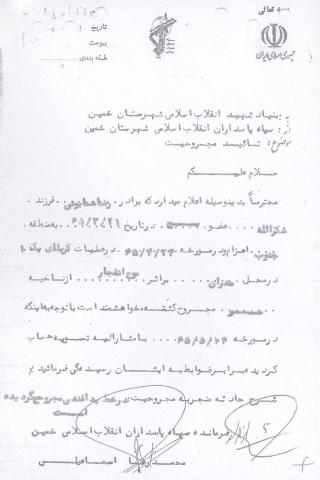 بسمه تعالی
تاریخ
پیوست
طبقه بندی
جمهوری اسلامی ایران
به: بنیاد شهید انقلاب اسلامی شهرستان خمین
از: سپاه پاسداران انقلاب اسلامی شهرستان خمین
موضوع: تائید مجروحیت
سلام علیکم
محترماً بدینوسیله اعلام میدارد که برادر رضا همایونی فرزند
شکرالله عضو بسیج در تاریخ ۶۵/۳/۲۱ به منطقه
جنوب اعزام و در مورخه ۶۵/۴/۲۳ در عملیات کربلای یک
در محل مهران بر اثر موج انفجار از ناحیه
مجروح گشته، خواهشمند است با توجه به اینکه
در مورخه ۶۵/۵/۲۴ با مشارالیه تسویه حساب
گردیده برابر ضوابط به ایشان رسیدگی فرمائید
شرح حادثه منجر به مجروحیت در خط پدافندی مجروح گردیده
است
فرمانده سپاه پاسداران انقلاب اسلامی خمین
محمدرضا اسماعیلی